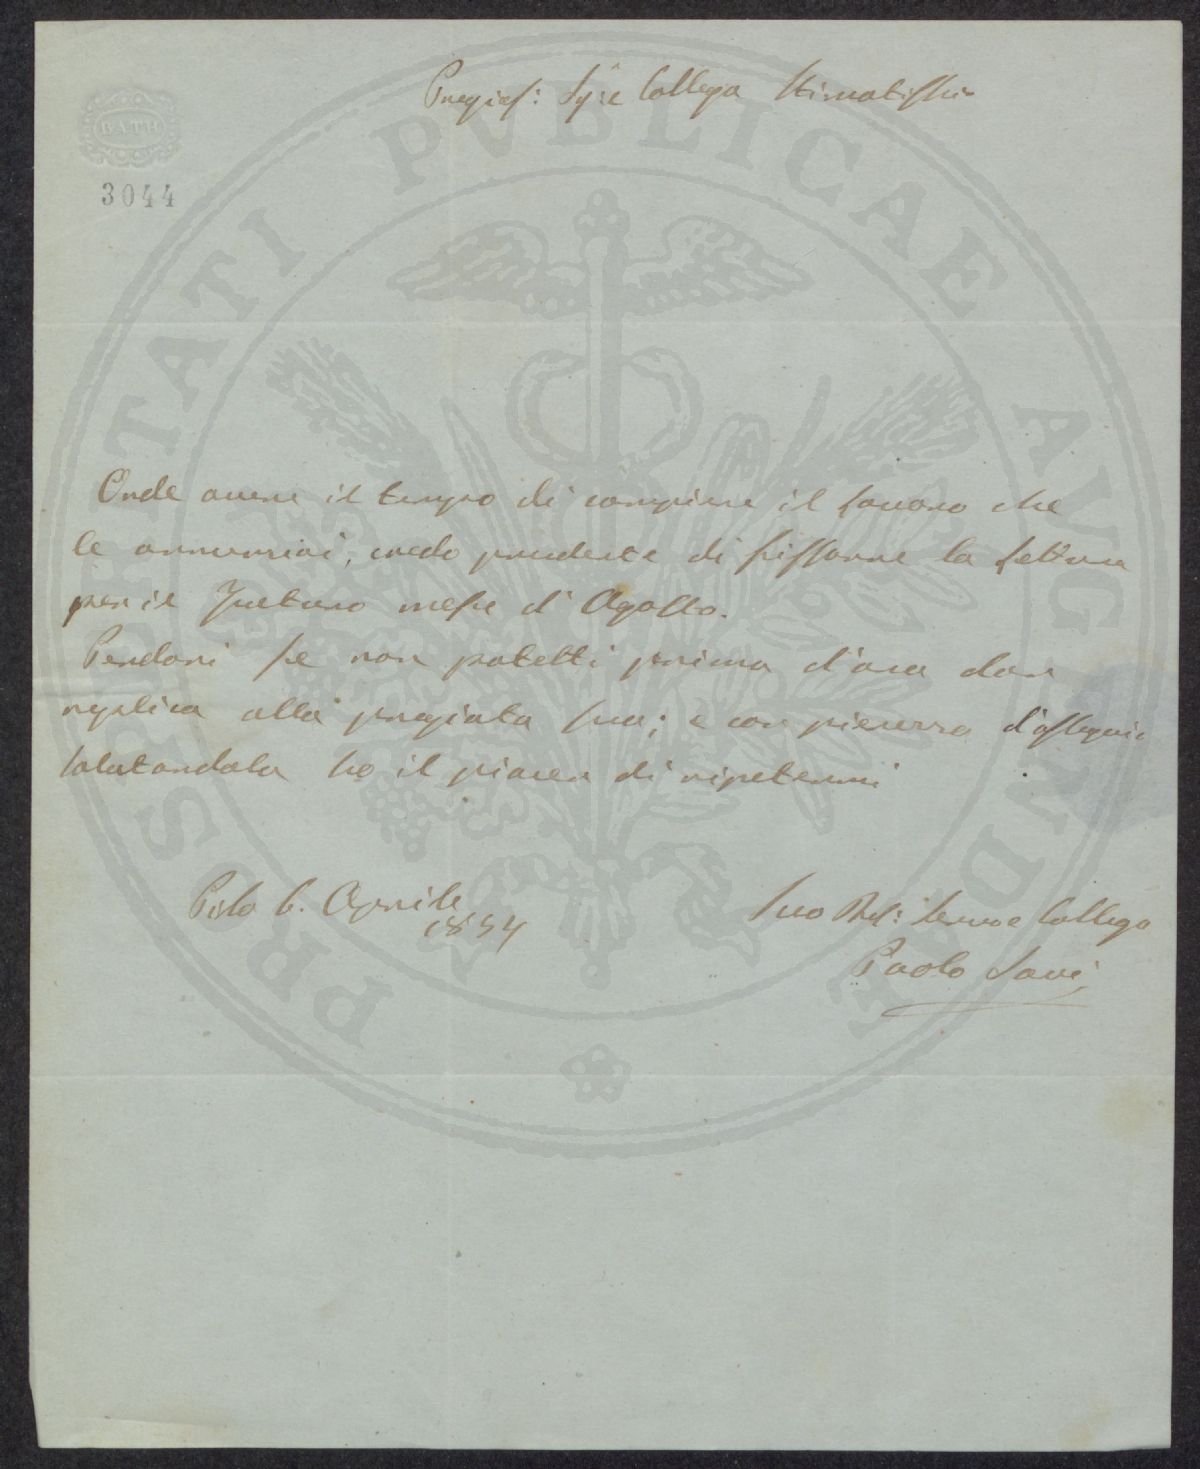 Pregias: Sig.e Collega Stimatissimo
BATH
3044
PROSPERITATI PVBLICAE AVGENDAE
Onde avere il tempo di compiere il lavoro che
le annunziai, credo prudente di fissarne la lettura
per il futuro mese d'Agosto.
Perdoni se non potetti prima d'ora dar
replica alla pregiata sua; e con pienezza d'ossequio
salutandola ho il piacer di ripetermi
Pisa 6. Aprile
1854
Suo Servo e Collega
Paolo Savi